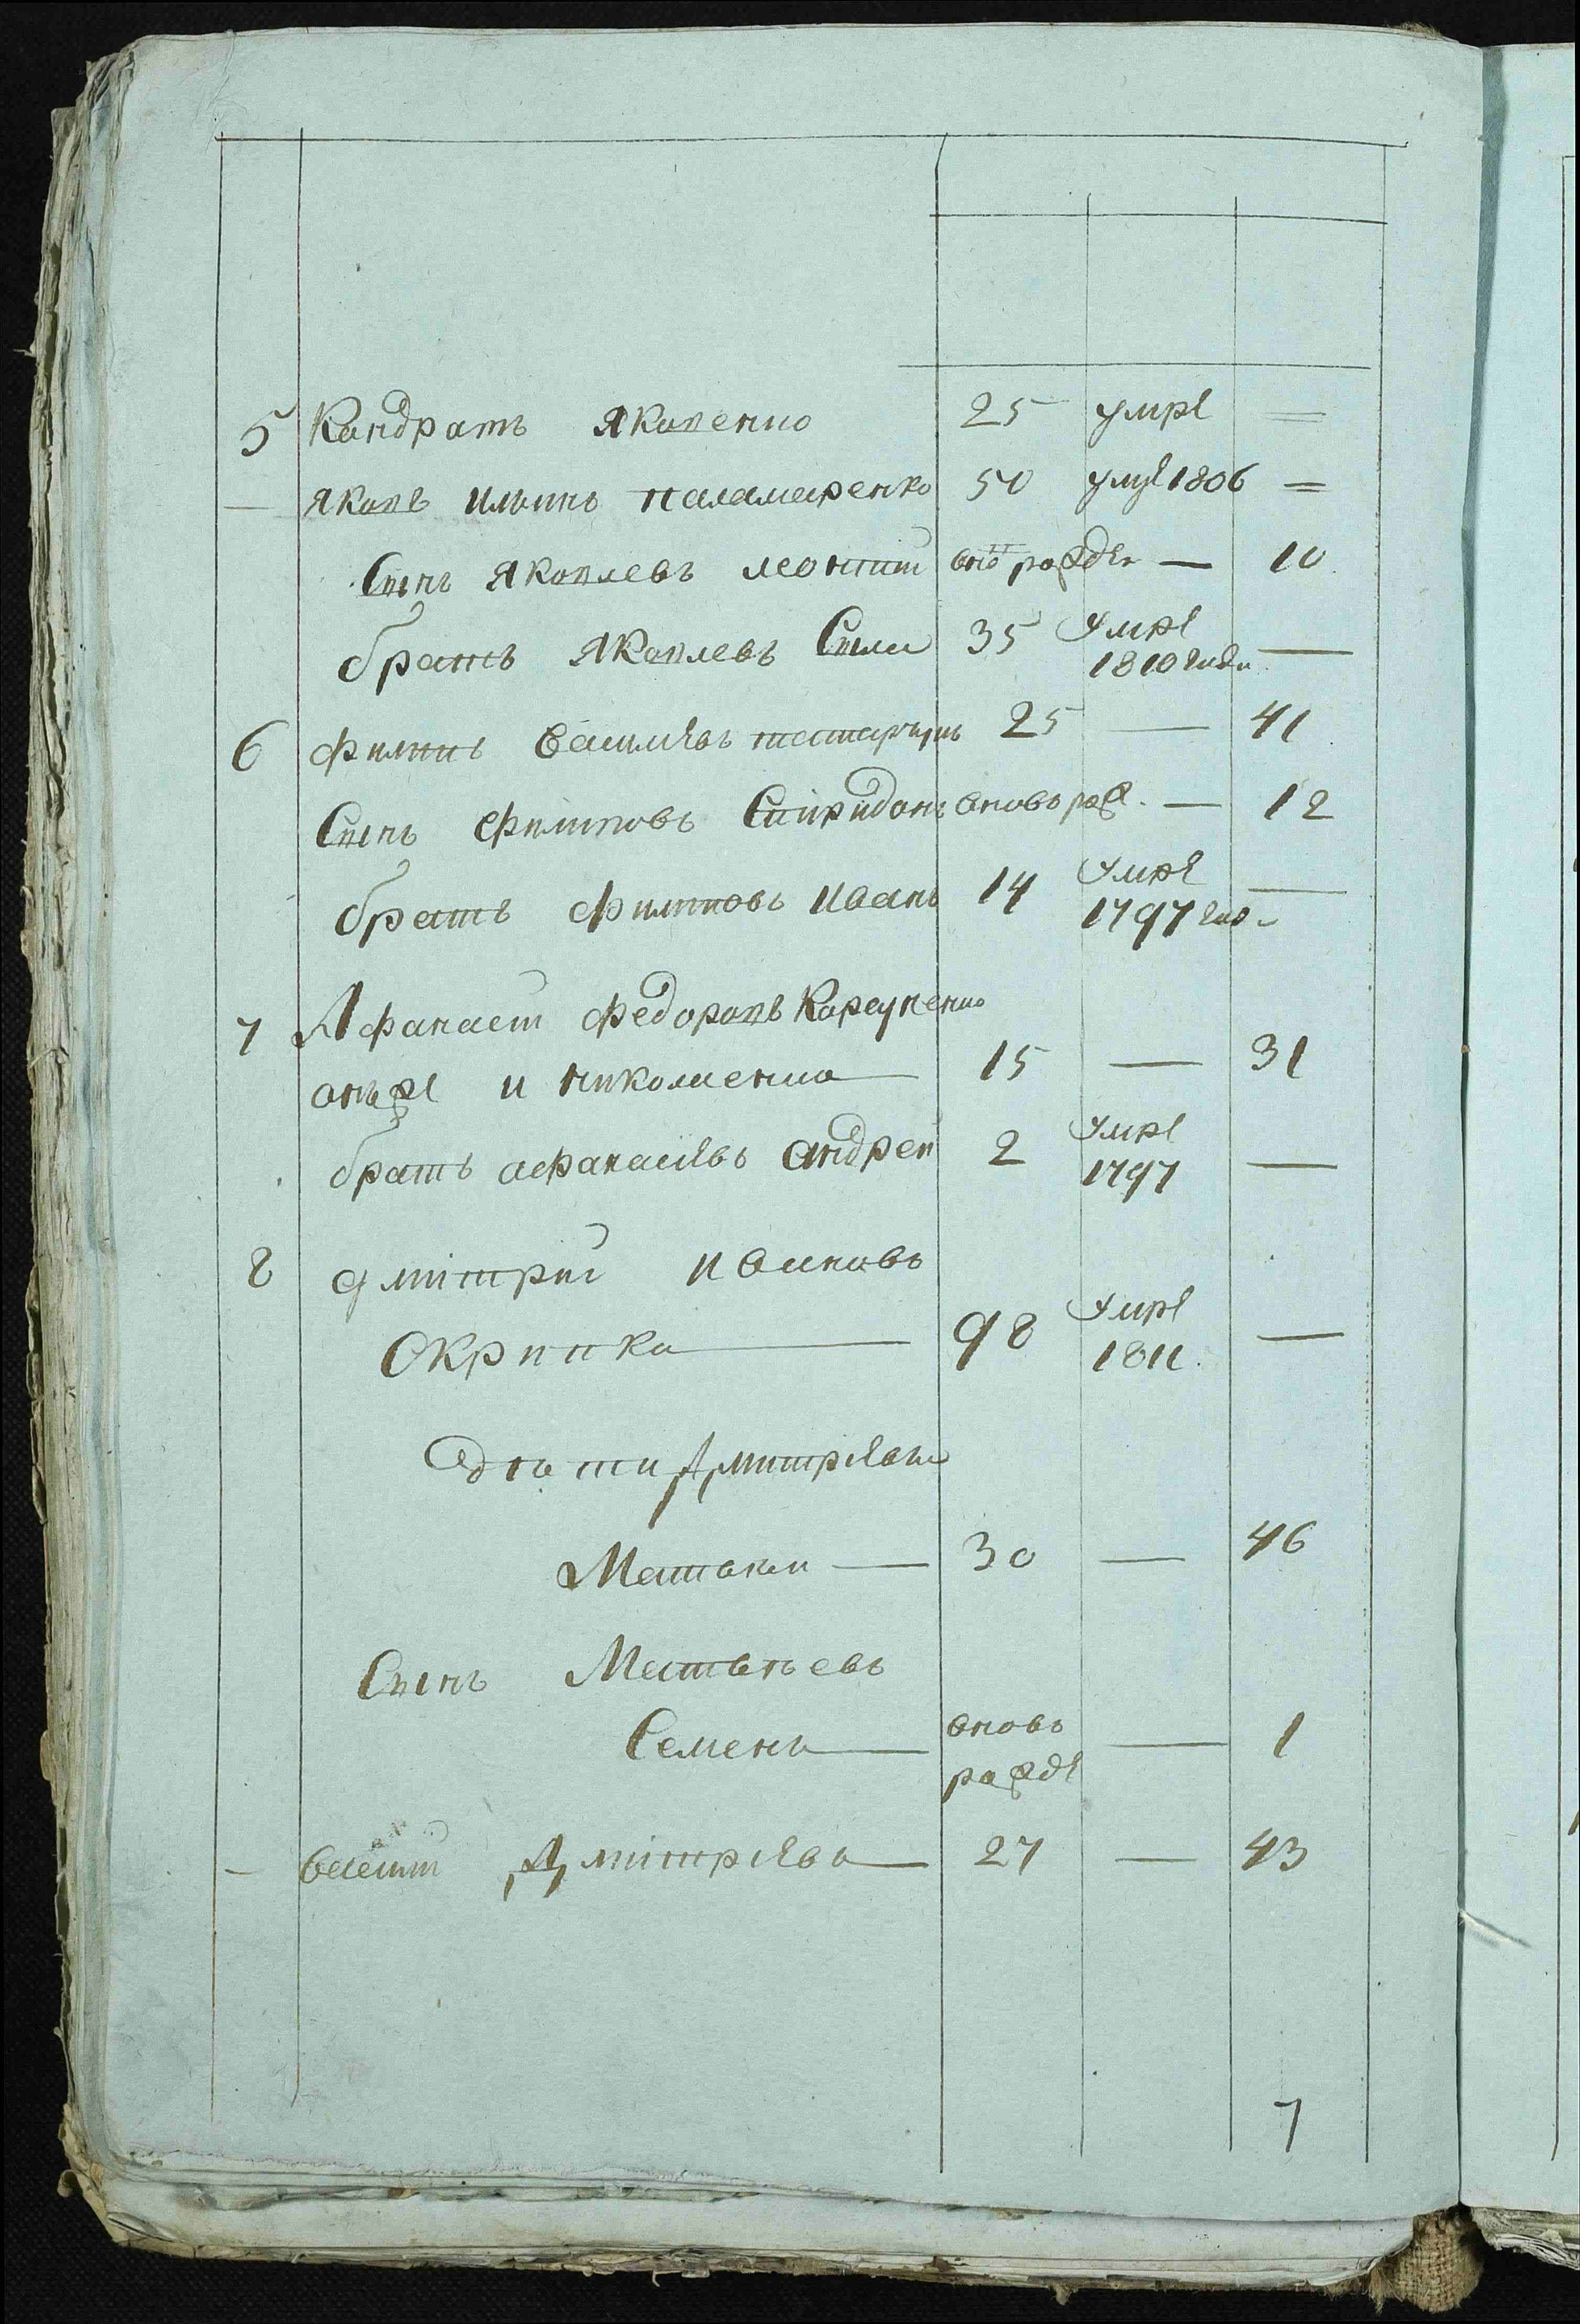 5 Кондратъ Яковенко 25 умре =
— Яковъ Ильинъ Паламаренко 50 умре 1806 =
Сынъ Яковлевъ Леонтий вно рожде — 10
братъ Яковлевъ Сила 35 умре 1810 года —
6 Филипъ Василевъ 25 — 41
Сынъ Филиповъ Спиридонъ вновь рож. — 12
братъ Филиповъ Иванъ 14 умре 1797 года —
7 Афанасий Федоровъ Корсуненко
онъже и Николаенко — 15 — 31
братъ Афанасиевъ Андрей 2 умре 1797 —
8 Дмитрий Ивановъ
Скрипка — 98 умре 1811. —
Дмитриевы
Матвей — 30 — 46
Сынъ Матвеевъ
Семенъ — вновь рожде — 1
— Василий Дмитриевъ — 27 — 43
7